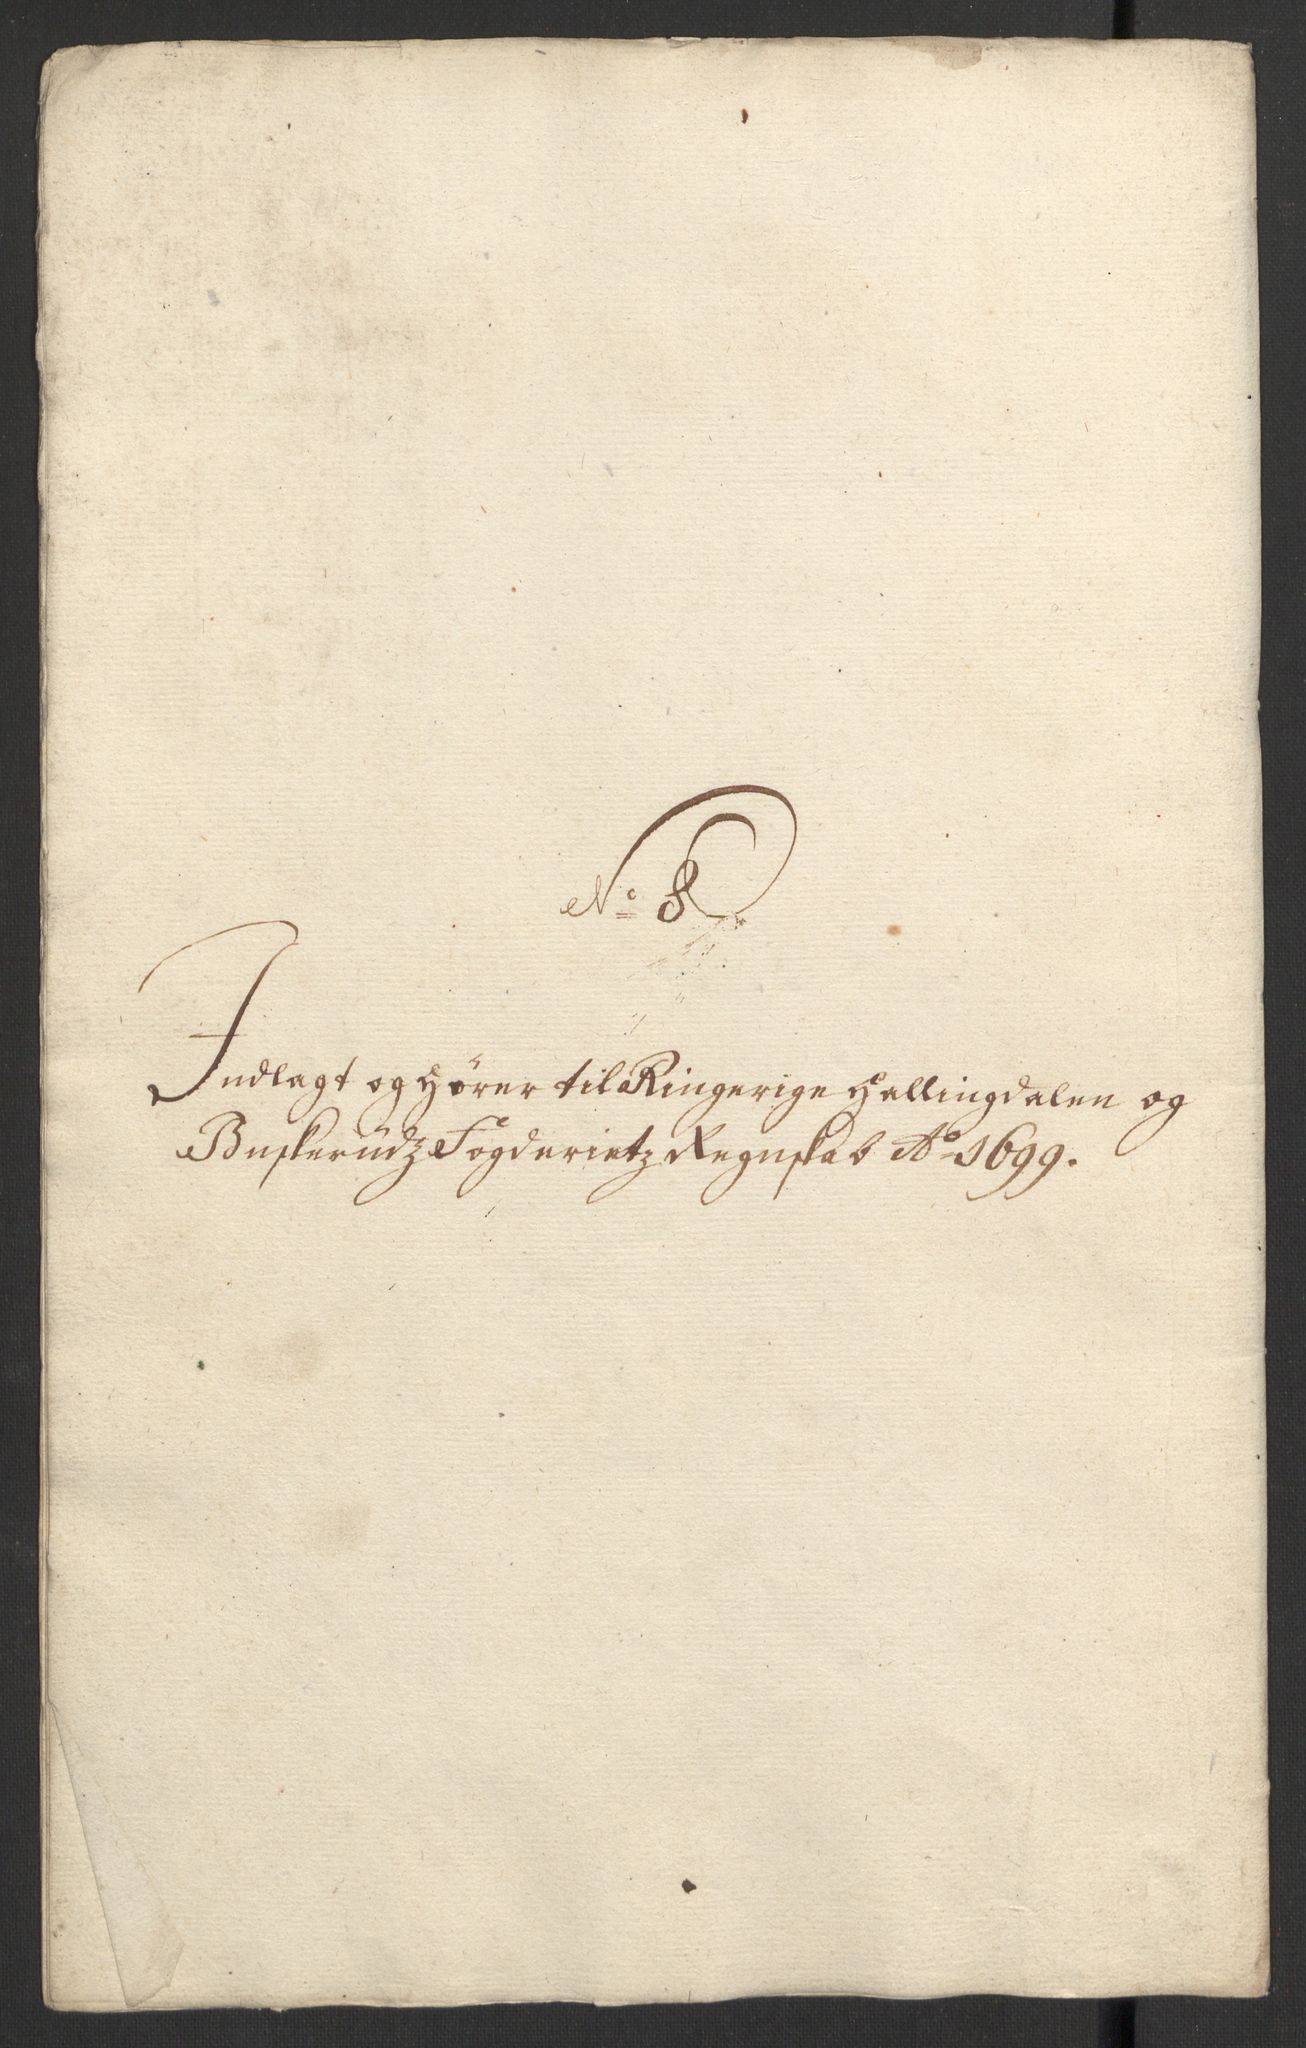 No 8
Indlagt og hører til Ringerige Hallingdalen og
Buskerüdz Fogderietz Regnskab Ao 1699.